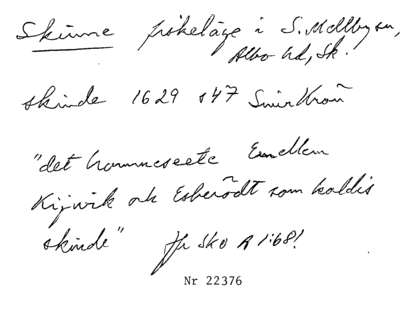 Skinne fiskeläge i S. Mellby sn,
Albo hd, Sk.
skinde 1629 s47 SmirKron
"det hamneseete Emellem
Kijwik och Esberödt som kaldis
skinde" Jfr SkO A 1:68!
Nr 22376